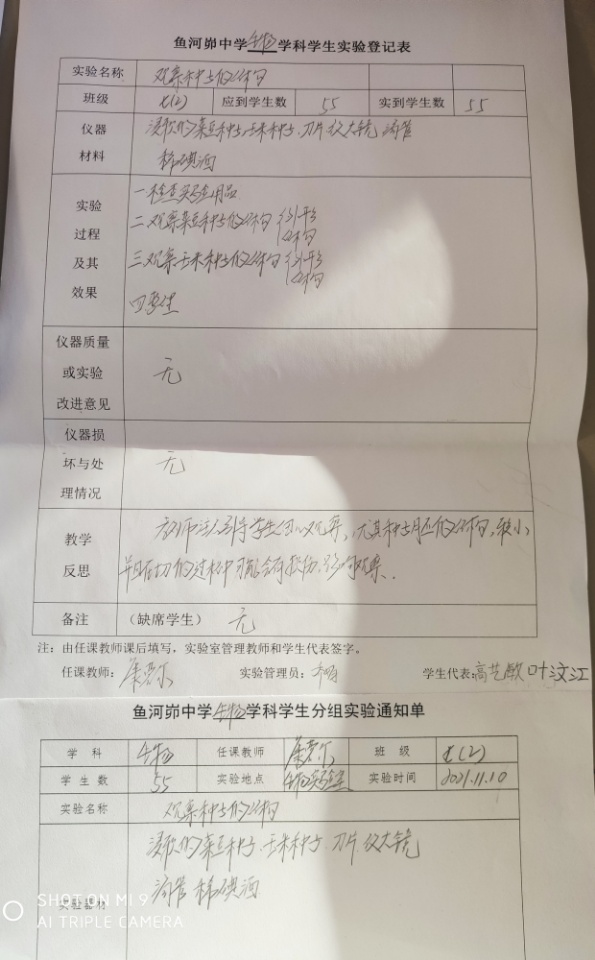 鱼河峁中学生物学科学生实验登记表
实验名称 观察种子的结构
班级 七(2) 应到学生数 55 实到学生数 55
仪器材料 浸软的菜豆种子、玉米种子、刀片、放大镜、滴管
稀碘酒
实验过程及其效果
一、检查实验用品
二、观察菜豆种子的结构 外形 结构
三、观察玉米种子的结构 外形 结构
四、
仪器质量或实验改进意见 无
仪器损坏与处理情况 无
教学反思
教师注意引导学生仔细观察,尤其种子胚的结构,较小
并且在切的过程中可能会有损伤,影响观察.
备注 (缺席学生) 无
注:由任课教师课后填写,实验室管理教师和学生代表签字。
任课教师: 实验管理员: 学生代表:高艺 叶汶江
鱼河峁中学生物学科学生分组实验通知单
学科 生物 任课教师 班级 七(2)
学生数 55 实验地点 生物实验室 实验时间 2021.11.10
实验名称 观察种子的结构
实验器材 浸软的菜豆种子、玉米种子、刀片、放大镜
滴管 稀碘酒
SHOT ON MI 9
AI TRIPLE CAMERA